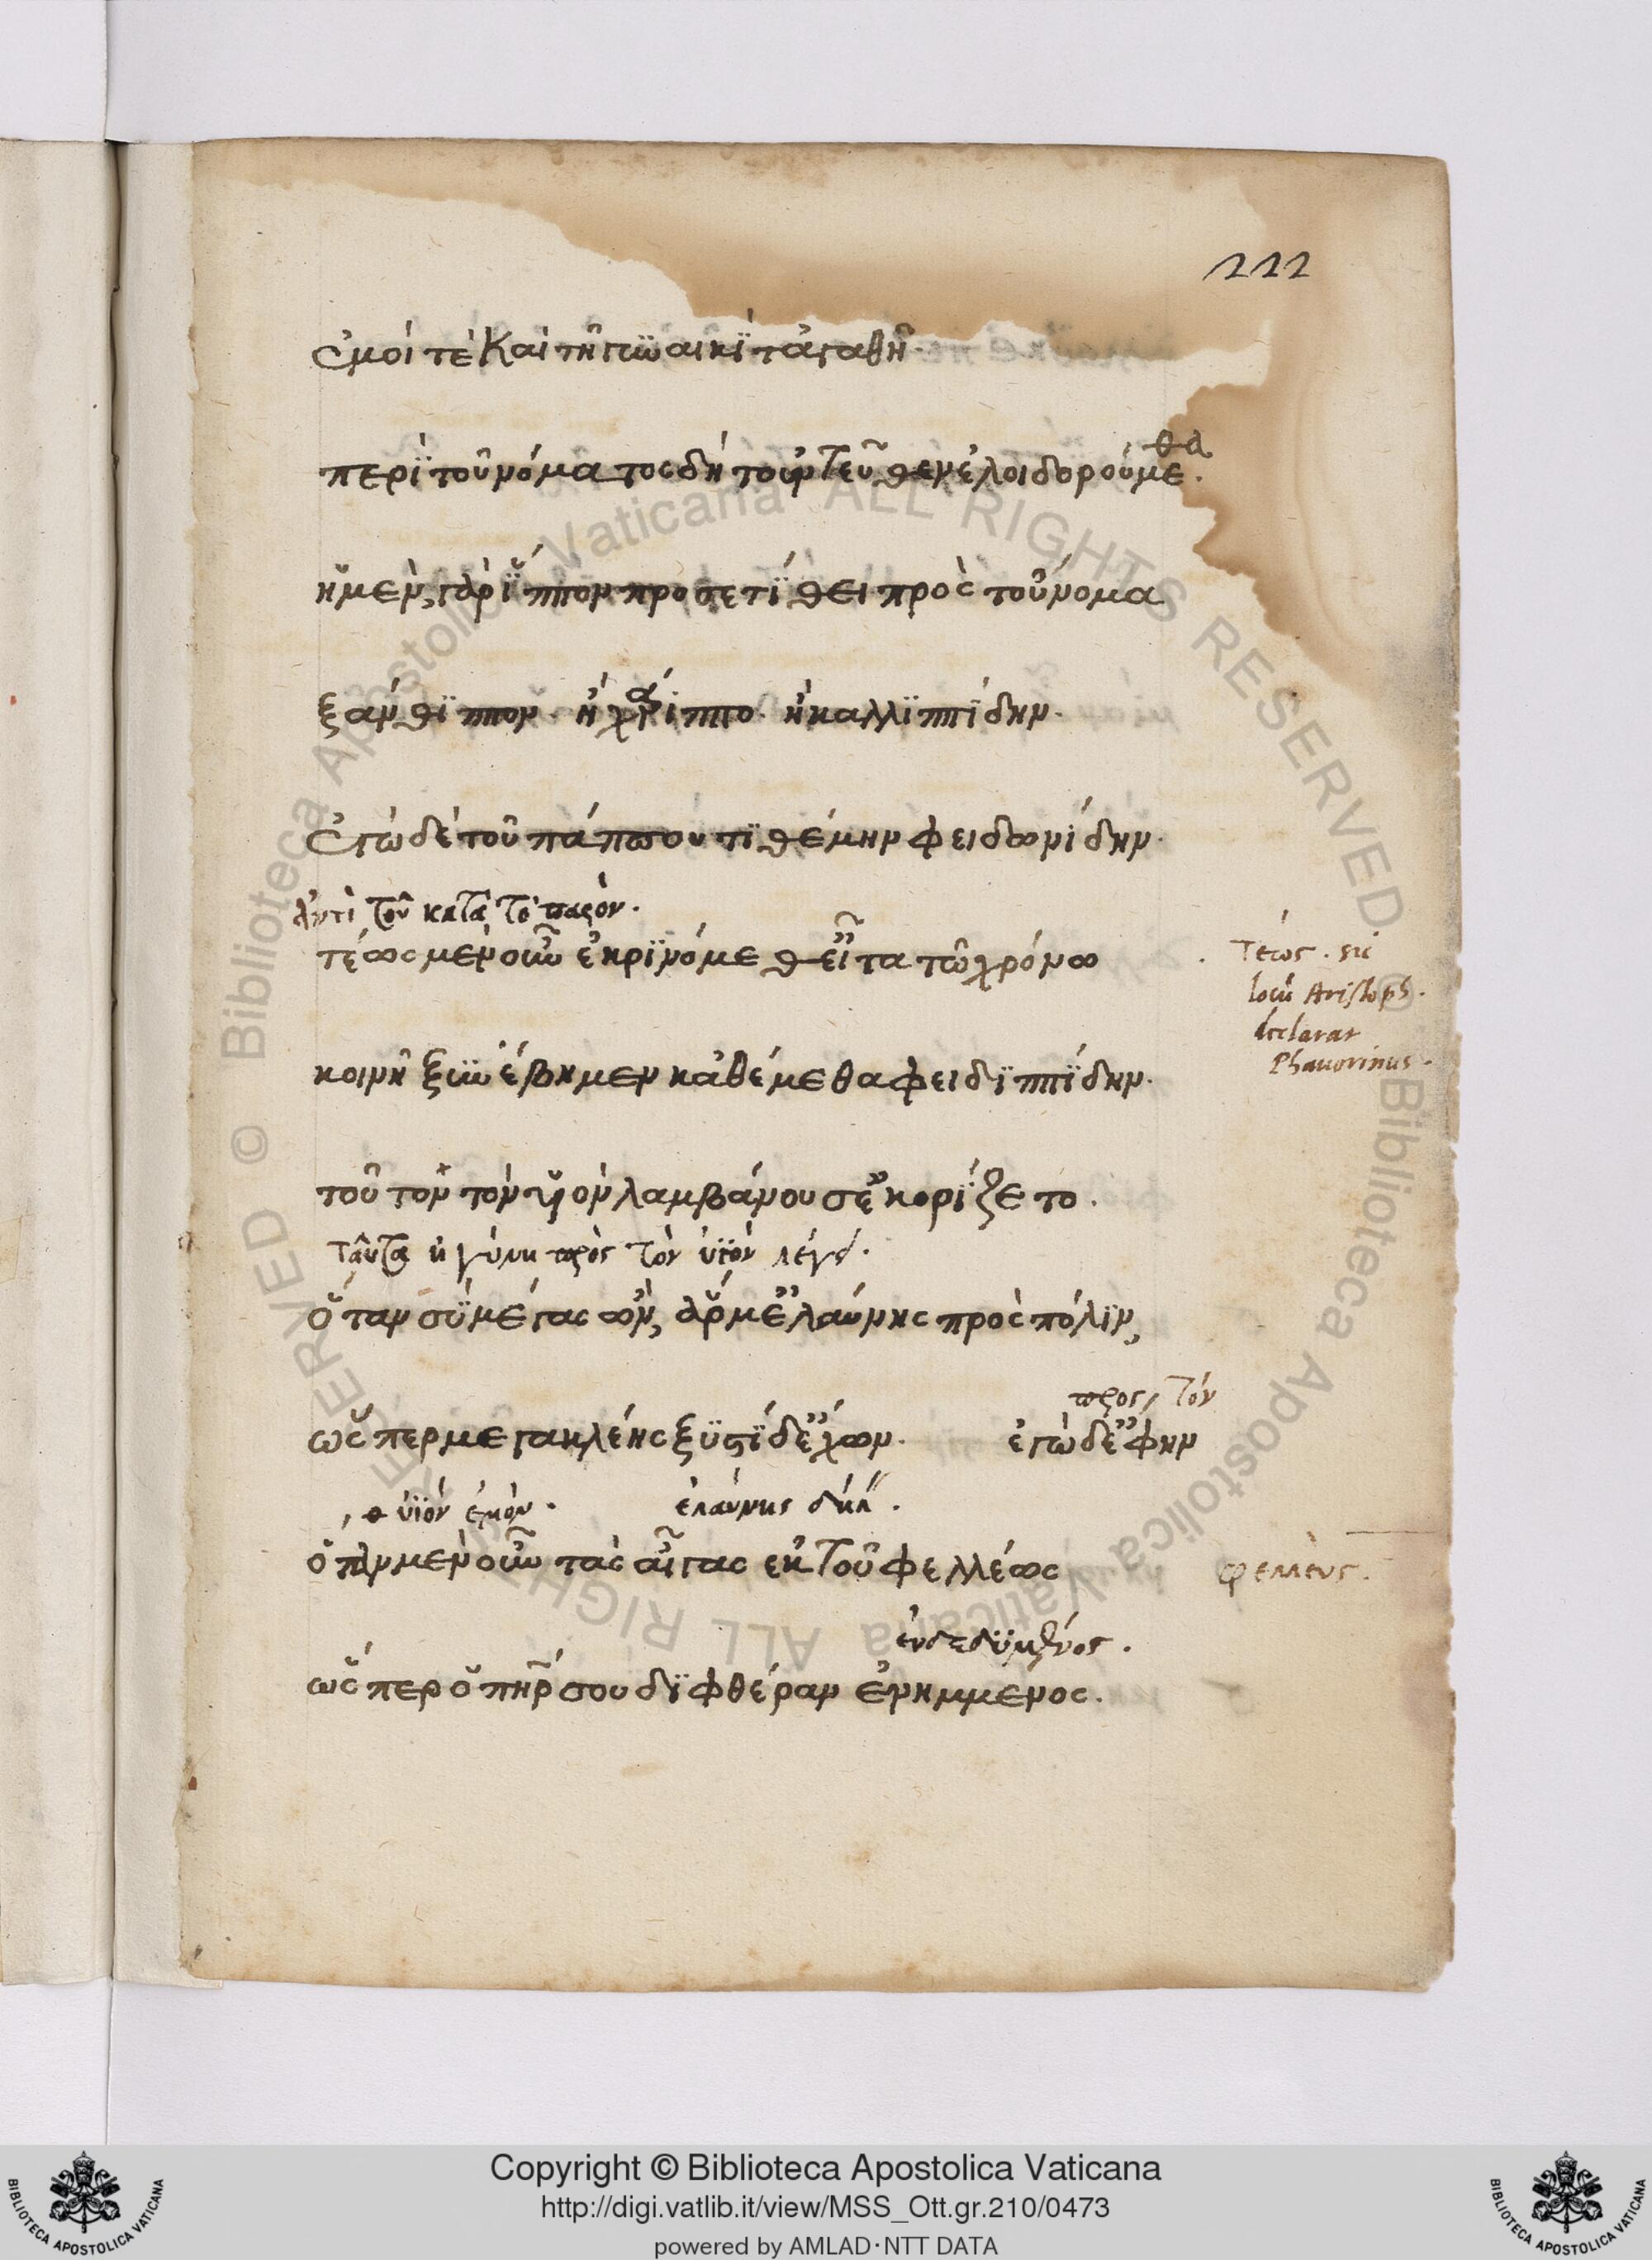 222
ἐμοί τὲ καὶ τῆ γυναικὶ τἀγαθῆ.
περὶ τοῦνόματος δὴ τοὐντεῦθεν ἐλοιδορούμεθα.
ἡ μὲν, γὰρ ἵππον προσετίθει πρὸς τοὔνομα
ξάνθιππον. ἢ χάριππο. ἢ καλλιππίδην.
ἐγὼ δὲ τοῦ πάππου τιθέμην φειδωνίδην.
ἀντὶ τοῦ κατὰ τὸ παρὸν.
τέως μὲν οὖν ἐκρινόμεθ εἶτα τῶ χρόνω
Τέως. sic
locũ Aristoph.
declarat
Phauorinus.
κοινῆ ξυνέβημεν κἀθέμεθα φειδιππίδην.
τοῦτον τὸν υἱὸν λαμβάνουσ ἐκορίζετο.
ταῦτα ἡ γύνη πρὸς τὸν ὑϊὸν λέγει.
ὅταν σὺ μέγας ὢν, ἅρμ ἐλαύνης πρὸς πόλιν,
πρὸς, τόν
ὥσπερ μεγακλέης ξυστίδ ἔχων. ἐγὼ δ ἔφην
, υἱὸν ἐμὸν. ἐλαύνης δηλ.
ὅταν μὲν οὖν τὰς αἶγας ἐκ τοῦ φελλέως
φελλεὺς.
ἐνδεδυμένος.
ὥσπερ ὁ πατήρ σου διφθέραν ἐνημμενος.
Copyright © Biblioteca Apostolica Vaticana
http://digi.vatlib.it/view/MSS_Ott.gr.210/0473
powered by AMLAD·NTT DATA
BIBLIOTECA APOSTOLICA VATICANA
BIBLIOTECA APOSTOLICA VATICANA
© Biblioteca Apostolica Vaticana ALL RIGHTS RESERVED © Biblioteca Apostolica Vaticana ALL RIGHTS RESERVED